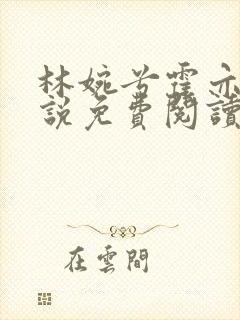 林婉兮霍亦
說免費閱讀
在雲間